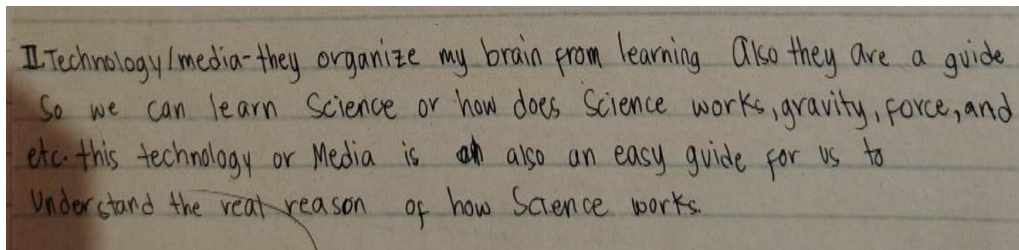 II. Technology/media-they organize my brain from learning Also they are a guide
So we can learn Science or how does Science works, gravity, force, and
etc. this technology or Media is also an easy guide for us to
Understand the real reason of how Science works.